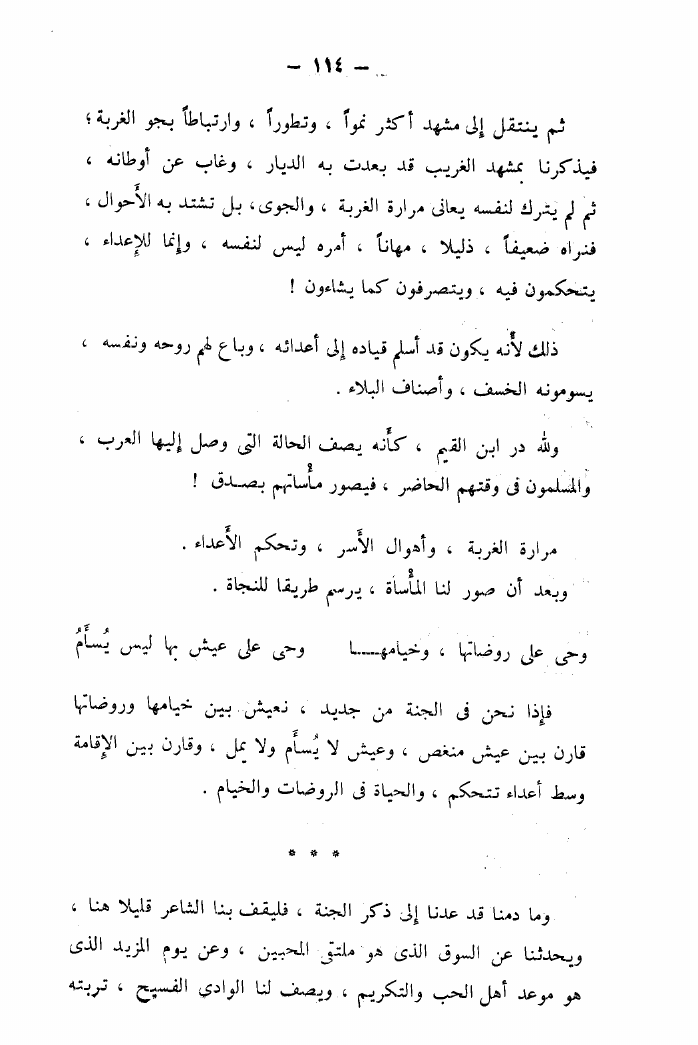 — ١١٤ —
ثم ينتقل إلى مشهد أكثر نمواً ، وتطوراً ، وارتباطاً بجو الغربة ؛
فيذكرنا بمشهد الغريب قد بعدت به الديار ، وغاب عن أوطانه ،
ثم لم يترك لنفسه يعانى مرارة الغربة ، والجوى، بل تشتد به الأَحوال ،
فنراه ضعيفاً ، ذليلا ، مهاناً ، أمره ليس لنفسه ، وإنما للإعداء ،
يتحكمون فيه ، ويتصرفون كما يشاءون !
ذلك لأَنه يكون قد أسلم قياده إلى أعدائه ، وباع لهم روحه ونفسه ،
يسومونه الخسف ، وأصناف البلاء .
ولله در ابن القيم ، كأَنه يصف الحالة التى وصل إليها العرب ،
والمسلمون فى وقتهم الحاضر ، فيصور مأْساتهم بصدق !
مرارة الغربة ، وأهوال الأَسر ، وتحكم الأَعداء .
وبعد أن صور لنا المأْساة ، يرسم طريقا للنجاة .
وحى على روضاتها ، وخيامهـــا وحى على عيش بها ليس يُسأَمُ
فإذا نحن فى الجنة من جديد ، نعيش بين خيامها وروضاتها
قارن بين عيش منغص ، وعيش لا يُسأَم ولا يمل ، وقارن بين الإقامة
وسط أعداء تتحكم ، والحياة فى الروضات والخيام .
* * *
وما دمنا قد عدنا إلى ذكر الجنة ، فليقف بنا الشاعر قليلا هنا ،
ويحدثنا عن السوق الذى هو ملتقى المحبين ، وعن يوم المزيد الذى
هو موعد أهل الحب والتكريم ، ويصف لنا الوادي الفسيح ، تربته